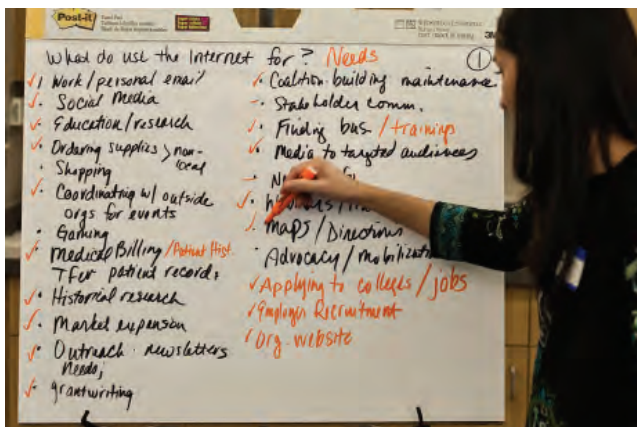 Post-it
What do use the Internet for? Needs
1
Work/personal email
Social Media
Education/research
Ordering supplies > non-local
Shopping
Coordinating w/ outside
orgs for events
Gaming
Medical Billing /Patient Hist.
TFer patient records
Historical research
Market expansion
Outreach newsletters
Needs
grantwriting
Coalition building maintenance
Stakeholder comm.
Finding bus /trainings
Media to targeted audiences
maps/Directions
Advocacy/mobilization
Applying to colleges/jobs
Employer Recruitment
Org. website